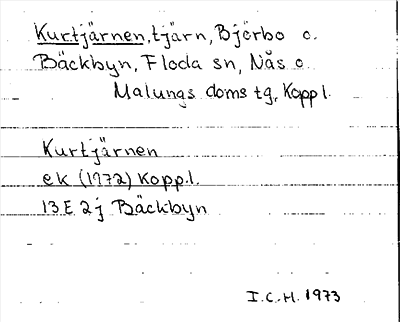 Kurtjärnen, tjärn, Björbo o.
Bäckbyn, Floda sn, Nås o.
Malungs doms tg, Koppl.
Kurtjärnen
ek (1972) Koppl.
13E 2j Bäckbyn
I.C.H. 1973